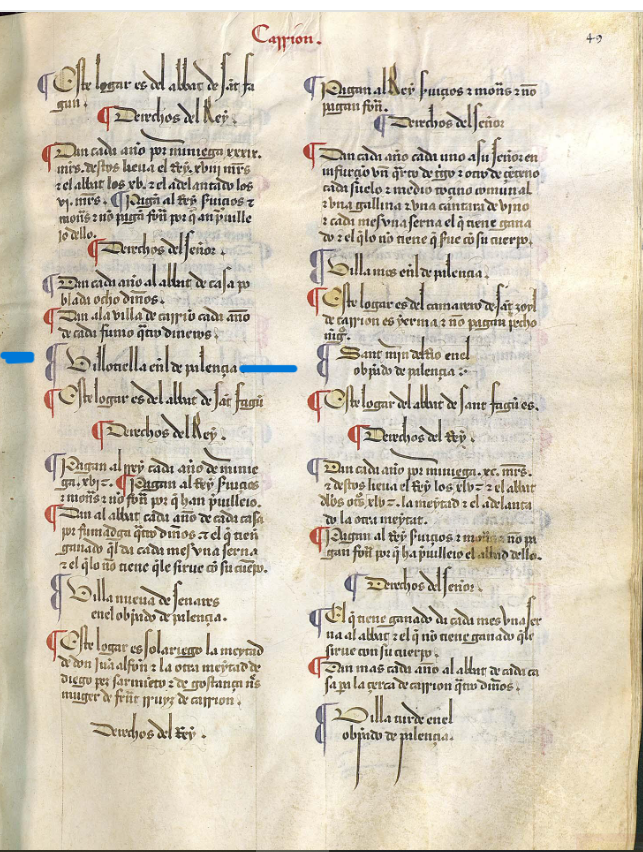 Carrion.
49
Este logar es del abbat de sant fa
gun.
Derechos del Rey.
Dan cada año por muniega xxxix.
mrs. destos lieua el Rey. xviii mrs
z el abbat los xv. z el adelantado los
vi. mrs. Pagan al Rey seruiçios z
mon̄s z no pagan fon̄ por q̄ an p̄uille
io dello.
Derechos del señor.
Dan cada año al abbat de casa po
blada ocho din̄os.
Dan ala villa de carrio cada año
de cada fumo q̄tro dineros.
Villotiella en̄l de palençia
Este logar es del abbat de sāt fagū
Derechos del Rey.
Pagan al rey cada año de munie
ga. Pagan al Rey seruiçios
z mon̄s z no fon̄ por q̄ han p̄uilleio.
Dan al abbat cada año de cada casa
por fumadga q̄tro din̄os z el q̄ tien
ganado q̄l da cada mes vna serna
z el q̄ lo no tiene q̄le sirue cō su cuerpo.
Villa nueua de senares
enel obp̄ado de palençia.
Este logar es solariego la meytad
de don juā alfon̄ z la otra meytad de
diego per̄ sarmiēto z de gostança
muger de ferr̄t rruyz de carrion.
Derechos del Rey.
Pagan al Rey seruiçios z mon̄s z no
pagan fon̄.
Derechos del señor
Dan cada año cada uno a su señor en
infurçio vn q̄rto de t̄go z otro de çeteno
cada suelo z medio toçino comunal
z vna gallina z vna cantara de vino
z cada mes vna serna el q̄ tiene gana
do z el q̄ lo no tiene q̄ sirue cō su cuerpo.
Villa mes en̄l de palençia.
Este logar es del camarero de sāt zoyl
de carrion es yerma z no pagan pecho
nīg̅.
Sant mīn del Rio enel
obp̄ado de palençia.
Este logar del abbat de sant fagū es.
Derechos del Rey.
Dan cada año por muniega. xc. mrs.
z destos lieua el Rey los xlv z el abbat
dlos ot̄s xlv. la meytad z el adelanta
do la otra meytat.
Pagan al Rey seruiçios z mon̄s z no pa
gan fon̄ por q̄ ha p̄uilleio el abbad dello.
Derechos del señor.
El q̄ tiene ganado da cada mes vna ser
na al abbat z el q̄ no tiene ganado q̄le
sirue con su cuerpo.
Dan mas cada año al abbat de cada ca
sa pa la çerca de carrion q̄tro din̄os.
Villa turde enel
obp̄ado de palençia.